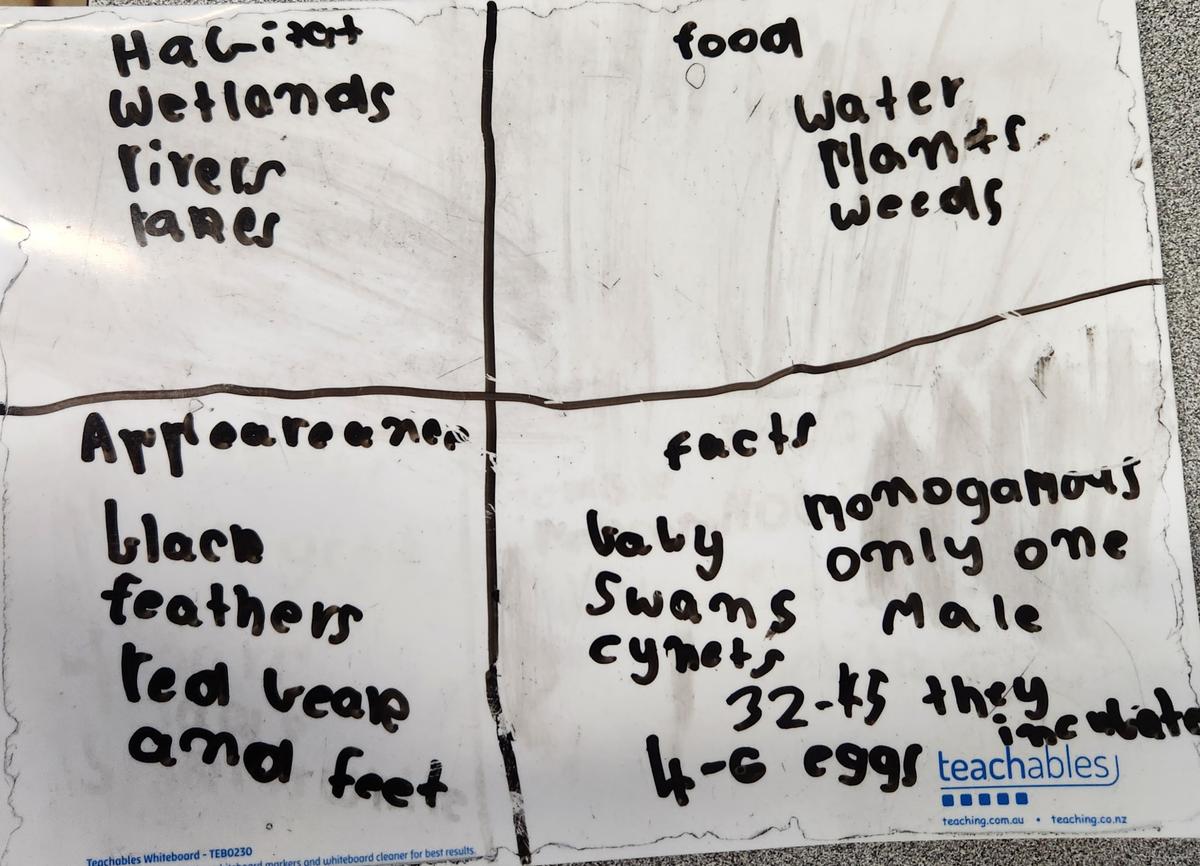 Habitat
Wetlands
rivers
lakes
food
water
Plants
weeds
Appeareance
black
feathers
red beak
and feet
facts
baby
swans
cynets
monogamous
only one
Male
32-45 they
incubate
4-6 eggs
teachables
teaching.com.au • teaching.co.nz
Teachables Whiteboard - TEB0230
whiteboard markers and whiteboard cleaner for best results.